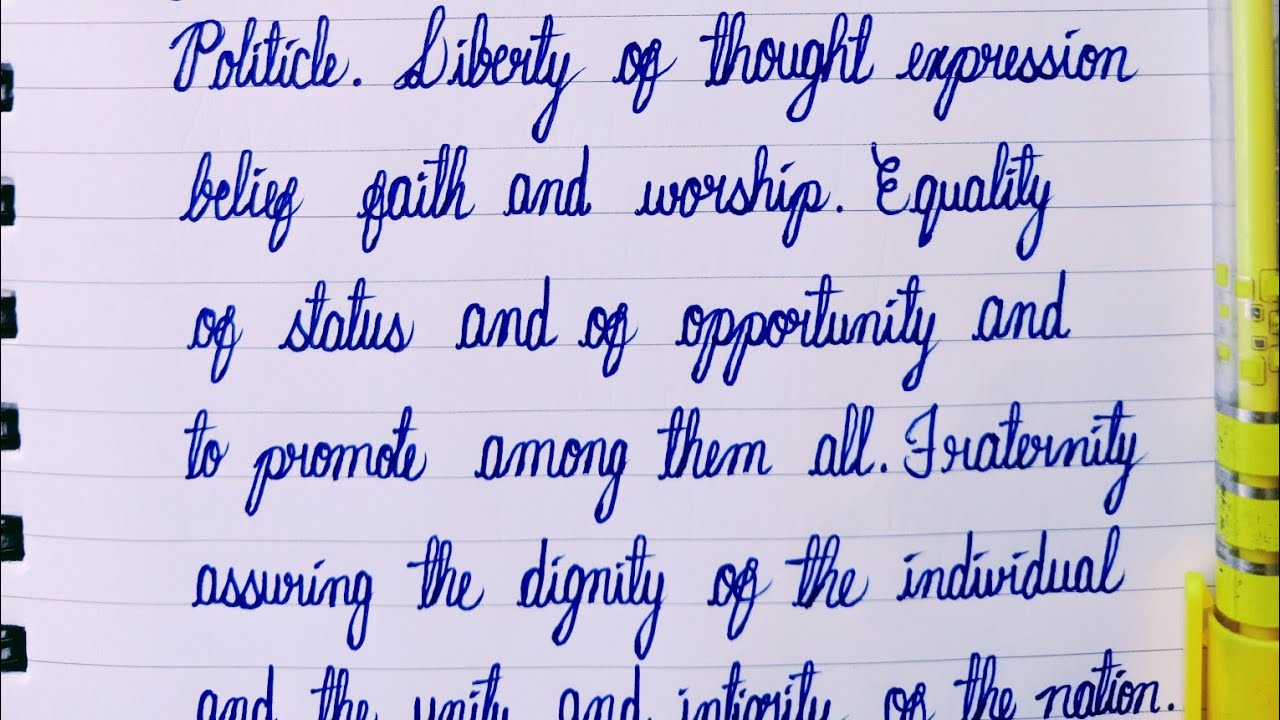 Politicle. Liberty of thought expression
belief faith and worship. Equality
of status and of opportunity and
to promote among them all. Fraternity
assuring the dignity of the individual
and the unity and intigrity of the nation.